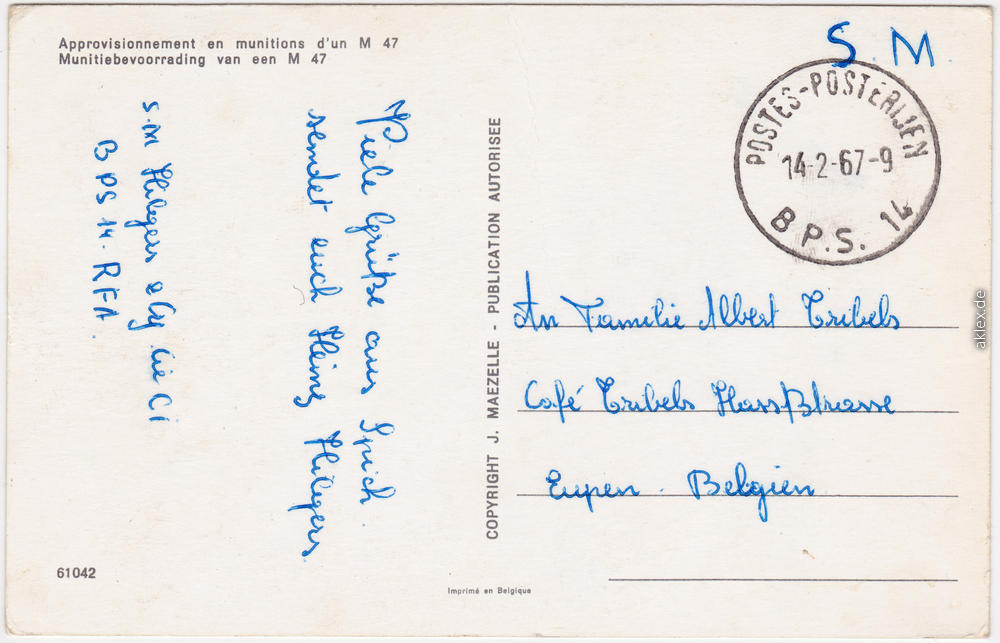 Approvisionnement en munitions d'un M 47
Munitiebevoorrading van een M 47
S.M.
POSTES-POSTERIJEN
14-2-67-9
B.P.S. 14
Viele Grüße aus Spich.
sendet euch Heinz Hilgers.
S.M Hilgers
BPS 14. RFA.
COPYRIGHT J. MAEZELLE - PUBLICATION AUTORISEE
An Familie Albert Tribels
Café Tribels Hassstrasse
Eupen. Belgien
61042
Imprimé en Belgique
aklex.de